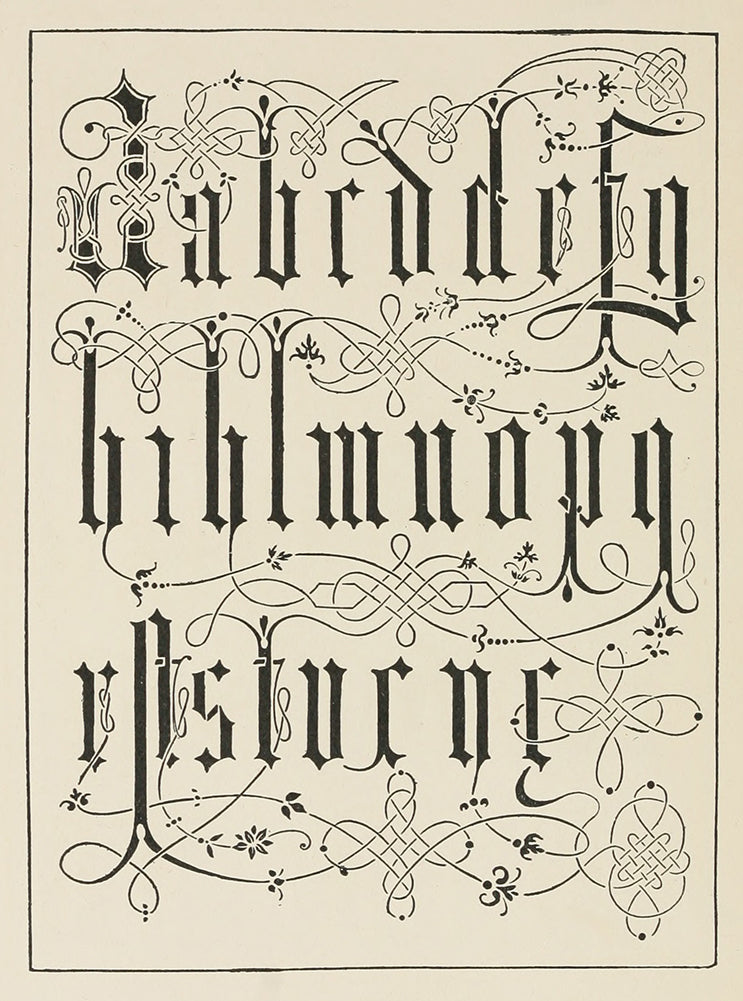 A a b c d d e f g
h i k l m n o p q
r ſ s t u x y z